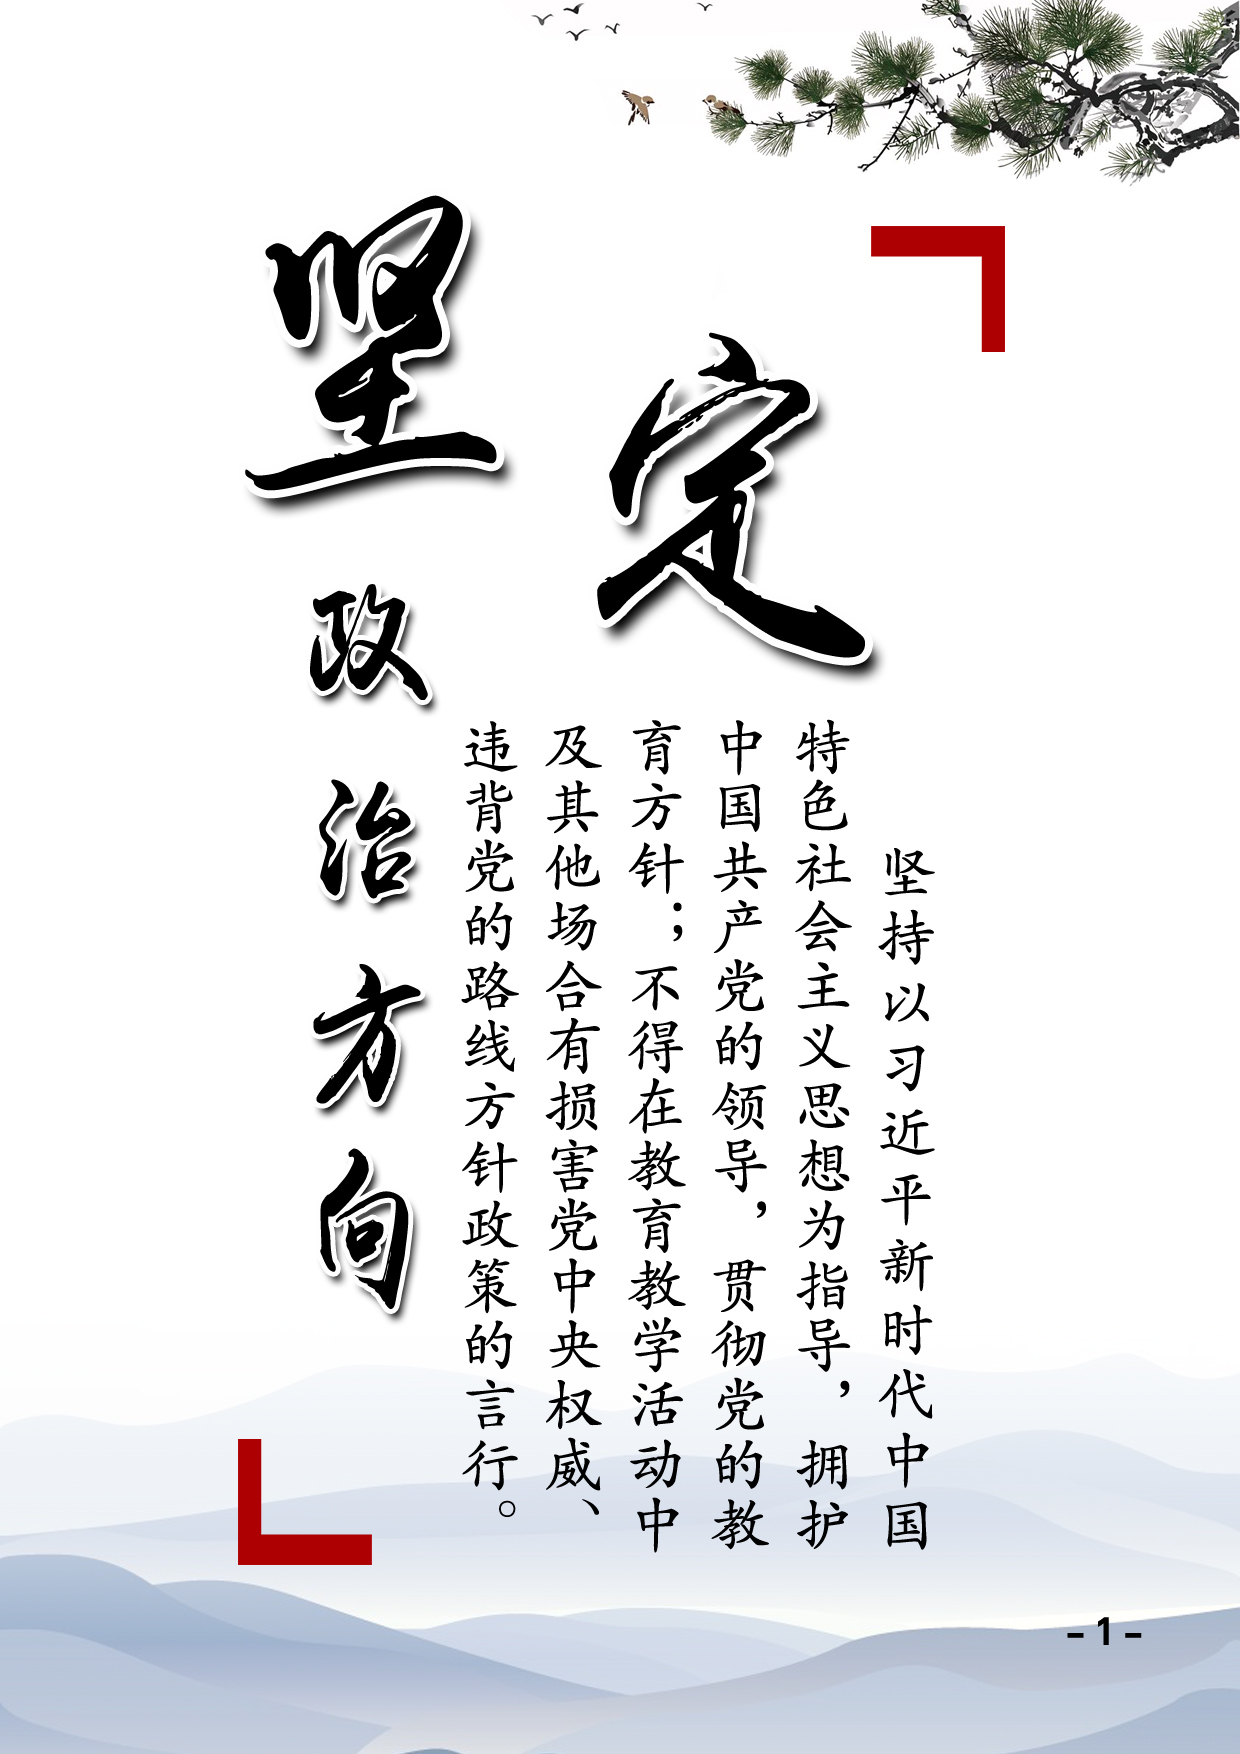 坚定
政治方向
坚持以习近平新时代中国
特色社会主义思想为指导，拥护
中国共产党的领导，贯彻党的教
育方针；不得在教育教学活动中
及其他场合有损害党中央权威、
违背党的路线方针政策的言行。
- 1 -